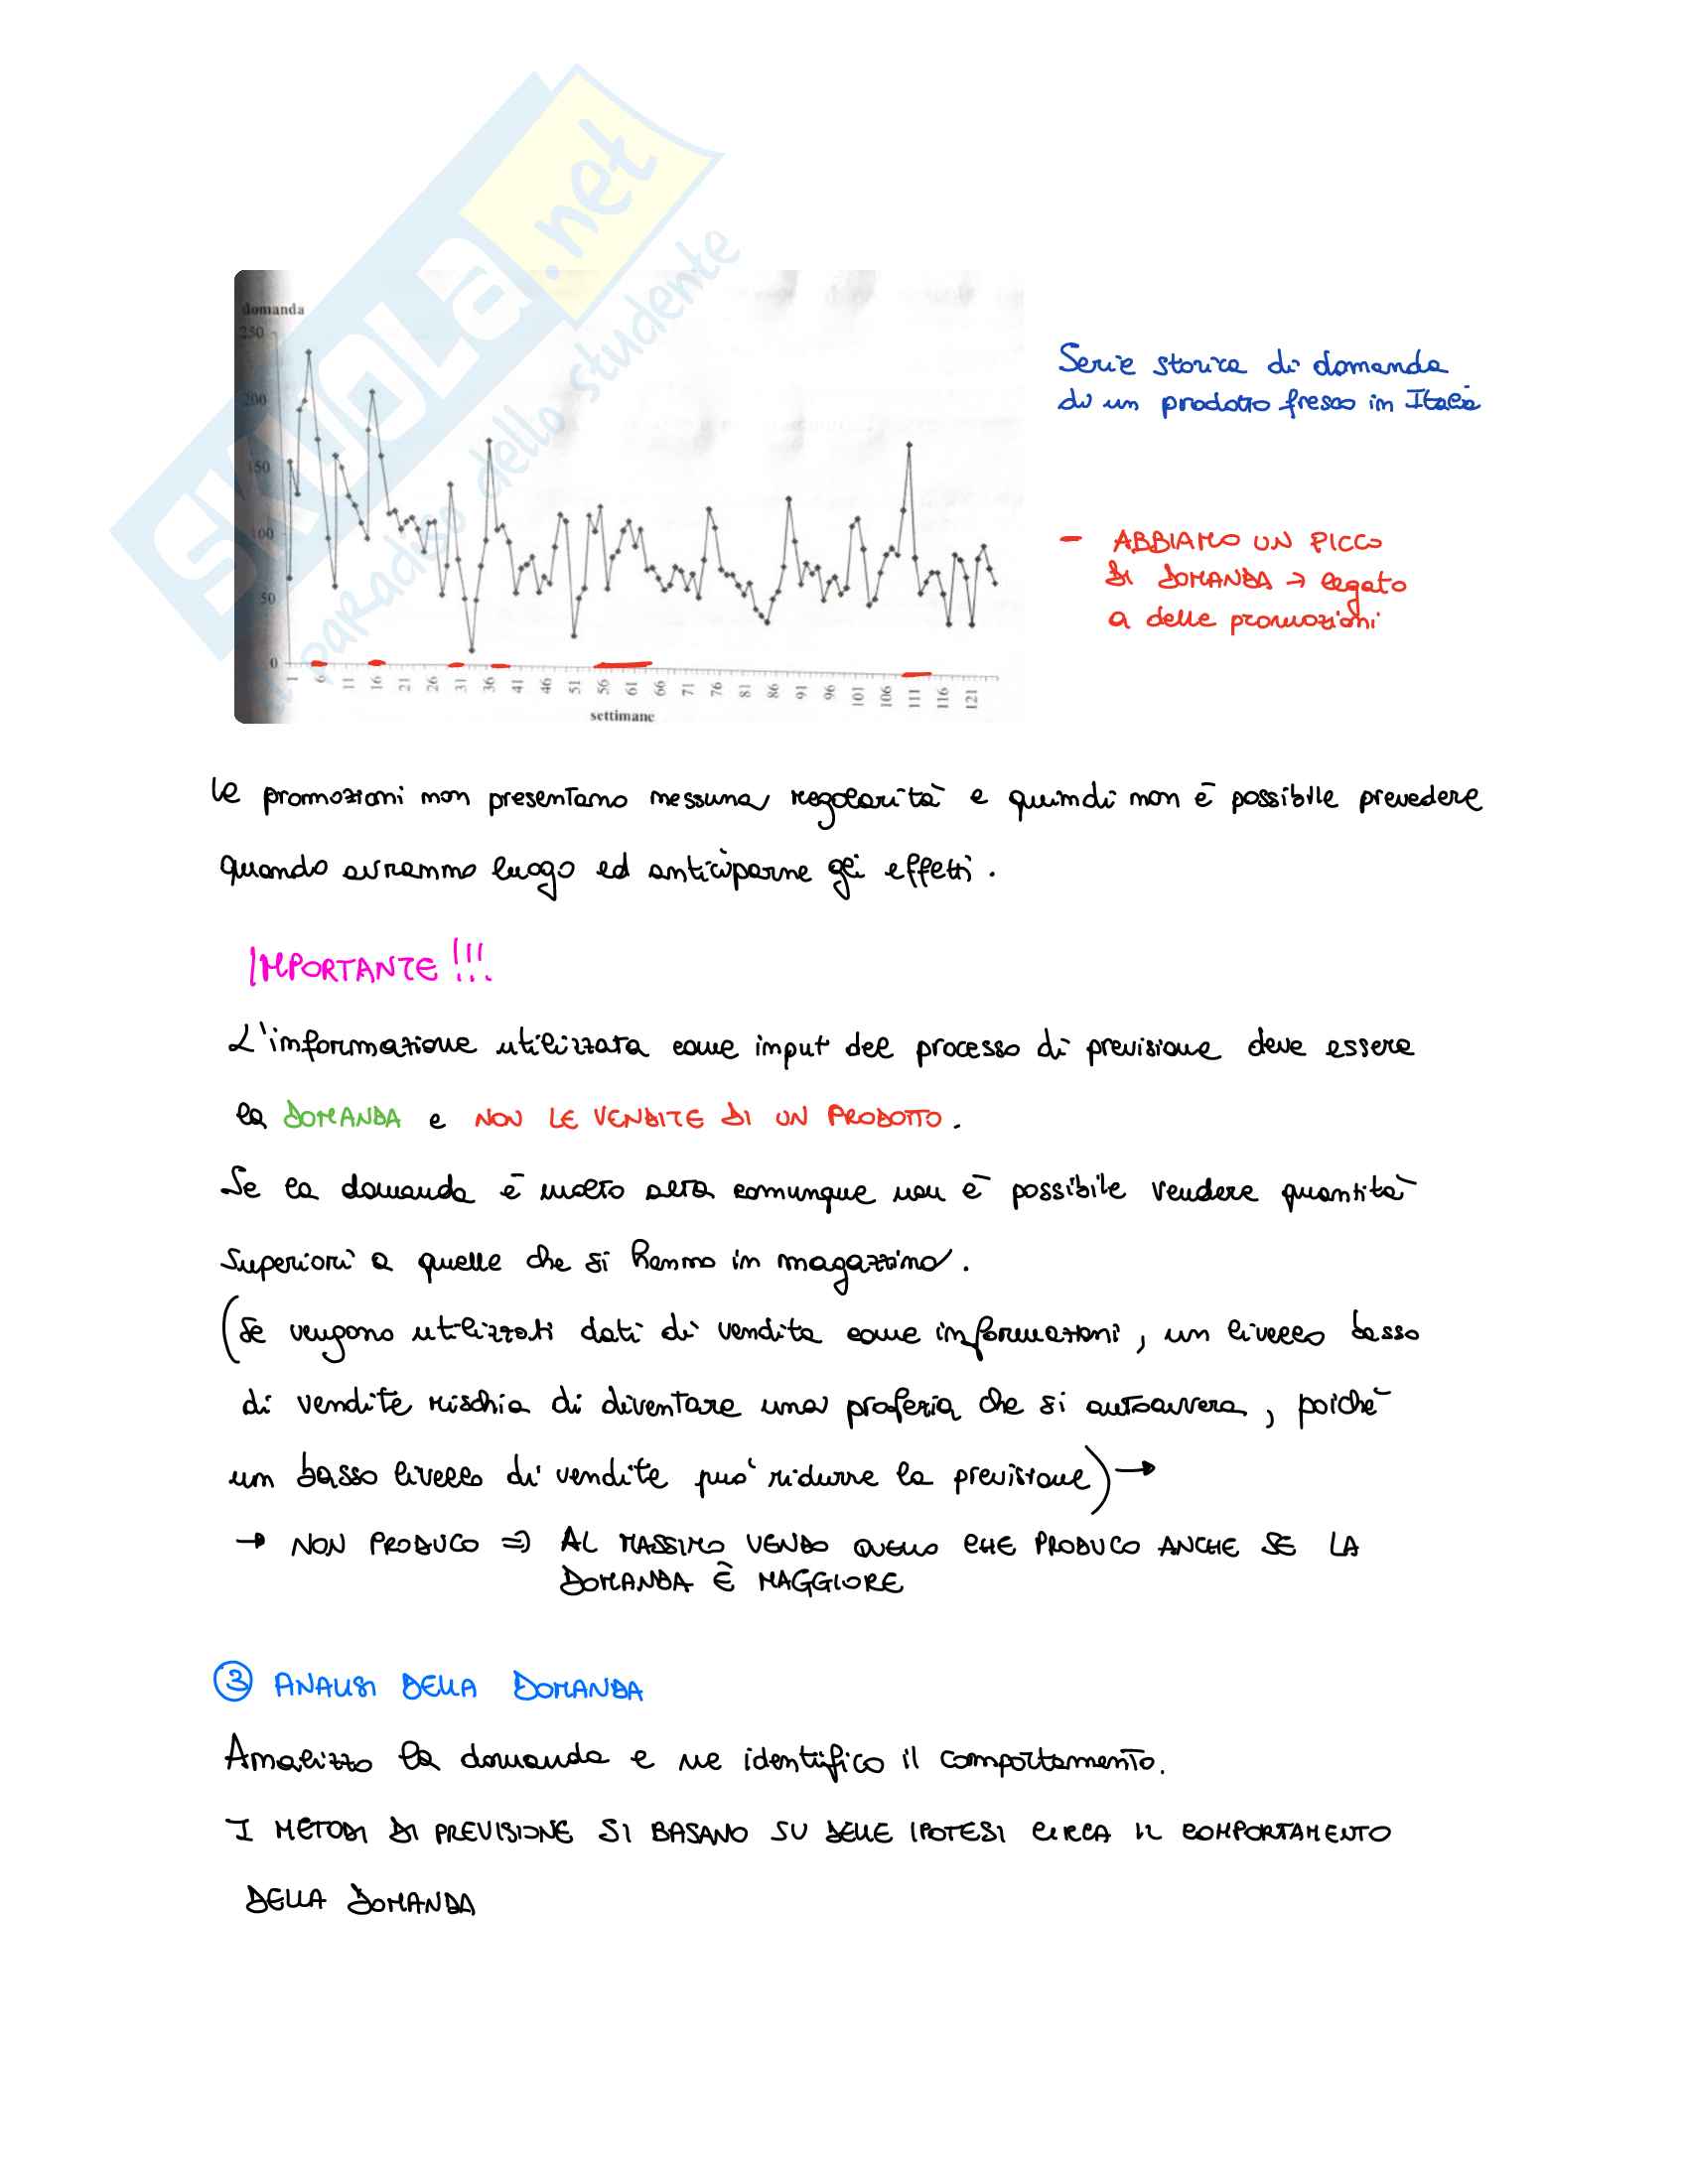 SKUOLA.net
il paradiso dello studente
domanda
250
200
150
100
50
0
1 6 11 16 21 26 31 36 41 46 51 56 61 66 71 76 81 86 91 96 101 106 111 116 121
settimane
Serie storica di domanda
di un prodotto fresco in Italia
- ABBIAMO UN PICCO
DI DOMANDA → legato
a delle promozioni
Le promozioni non presentano nessuna regolarità e quindi non è possibile prevedere
quando avranno luogo ed anticiparne gli effetti.
IMPORTANTE!!!
L'informazione utilizzata come input del processo di previsione deve essere
la DOMANDA e NON LE VENDITE DI UN PRODOTTO.
Se la domanda è molto alta comunque non è possibile vendere quantità
superiori a quelle che si hanno in magazzino.
(Se vengono utilizzati dati di vendita come informazioni, un livello basso
di vendite rischia di diventare una profezia che si autoavvera, poiché
un basso livello di vendite può ridurre la previsione) →
→ NON PRODUCO => AL MASSIMO VENDO QUELLO CHE PRODUCO ANCHE SE LA
DOMANDA È MAGGIORE
③ ANALISI DELLA DOMANDA
Analizzo la domanda e ne identifico il comportamento.
I METODI DI PREVISIONE SI BASANO SU DELLE IPOTESI CIRCA IL COMPORTAMENTO
DELLA DOMANDA